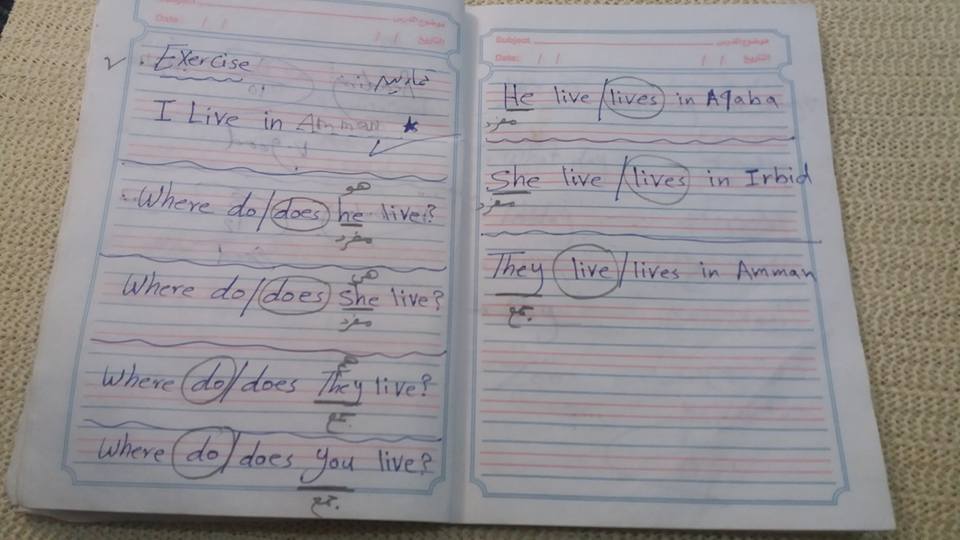 Subject
Date: / /
التاريخ / /
Exercise
تمارين
I Live in Amman
هو
Where do/does he live?
مفرد
هي
Where do/does she live?
مفرد
هم
Where do/does They live?
جمع
Where do/does you live?
جمع
Subject
موضوع الدرس
Date: / /
التاريخ / /
He live/lives in Aqaba
مفرد
She live/lives in Irbid
مفرد
They live/lives in Amman
جمع